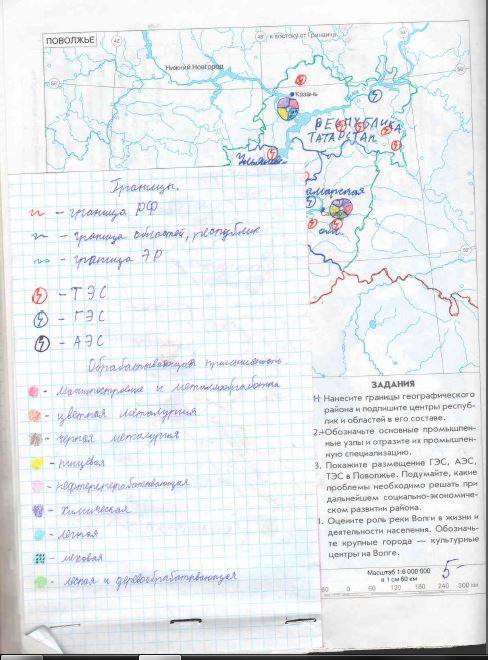 ПОВОЛЖЬЕ
42°
48°
к востоку от Гринвича
Нижний Новгород
Казань
РЕСПУБЛИКА
ТАТАРСТАН
Ульянов
амарская
обл.
52°
Границы.
- граница РФ
- граница областей, республик
- граница ЭР
- ТЭС
- ГЭС
- АЭС
Обрабатывающая промышленность
- машиностроение и металлообработка
- цветная металургия
- черная металургия
- пищевая
- нефтеперерабатывающая
- химическая
- легкая
- меховая
- лесная и деревообрабатывающая
ЗАДАНИЯ
1. Нанесите границы географического
района и подпишите центры респуб-
лик и областей в его составе.
2. Обозначьте основные промышлен-
ные узлы и отразите их промышлен-
ную специализацию.
3. Покажите размещение ГЭС, АЭС,
ТЭС в Поволжье. Подумайте, какие
проблемы необходимо решать при
дальнейшем социально-экономиче-
ском развитии района.
4. Оцените роль реки Волги в жизни и
деятельности населения. Обозначь-
те крупные города — культурные
центры на Волге.
Масштаб 1:6 000 000
в 1 см 60 км
5-
60 0 60 120 180 240 300 км